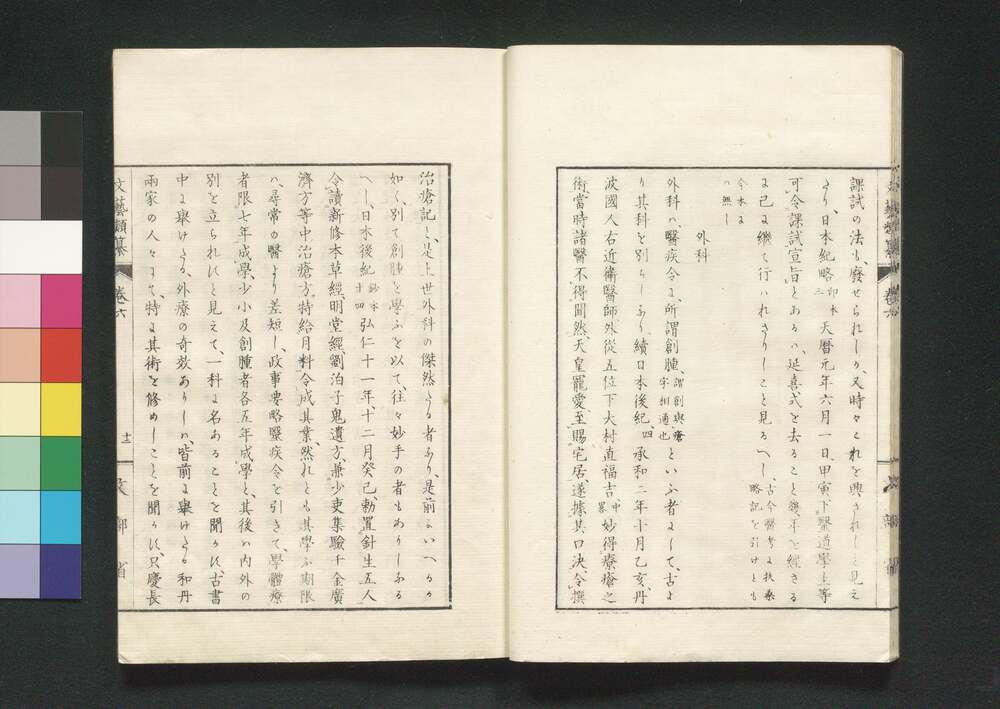 課試の法も、廢せられしか、又時々これを興されしと見え
たり、日本紀略印本三天暦元年六月一日、甲寅、下醫道學生等
可令課試宣旨とあるハ、延喜式を去ること幾年を經ざる
に已に繼て行ハれざりしこと見るべし、古今醫考に扶桑略記を引けとも
今本にハ無し
外科
外科ハ、醫疾令に、所謂創腫、謂創與瘡字相通也といふ者にして、古よ
り其科を別ちしなり、續日本後紀、四承和二年十月乙亥、丹
波國人右近衛醫師外從五位下大村直福吉、中畧妙得療瘡之
術、當時諸醫不得間然、天皇寵愛、至賜宅居、遂據其口決、令撰
治瘡記と、是上世外科の傑然たる者なり、是前にいへるか
如く、別て創腫を學ふを以て、往々妙手の者もありしなる
へし、日本後紀鈔本十四弘仁十一年十二月癸已、勅置針生五人
令讀新修本草經、明堂經、劉涓子鬼遺方、兼少吏集驗千金廣
濟方等中治瘡方、特給月料令成其業、然れとも其學ふ期限
ハ、尋常の醫より差短し、政事要略醫疾令を引きて、學體療
者限七年成學、少小及創腫者各五年成學と、其後ハ内外の
別を立られしと見えて、一科に名あることを聞かす、古書
中に擧けたる外療の奇效ありしハ、皆前に擧けたる和丹
兩家の人々にて、特に其術を修めしことを聞かす、只慶長
文藝類纂
卷六
十三
文部省